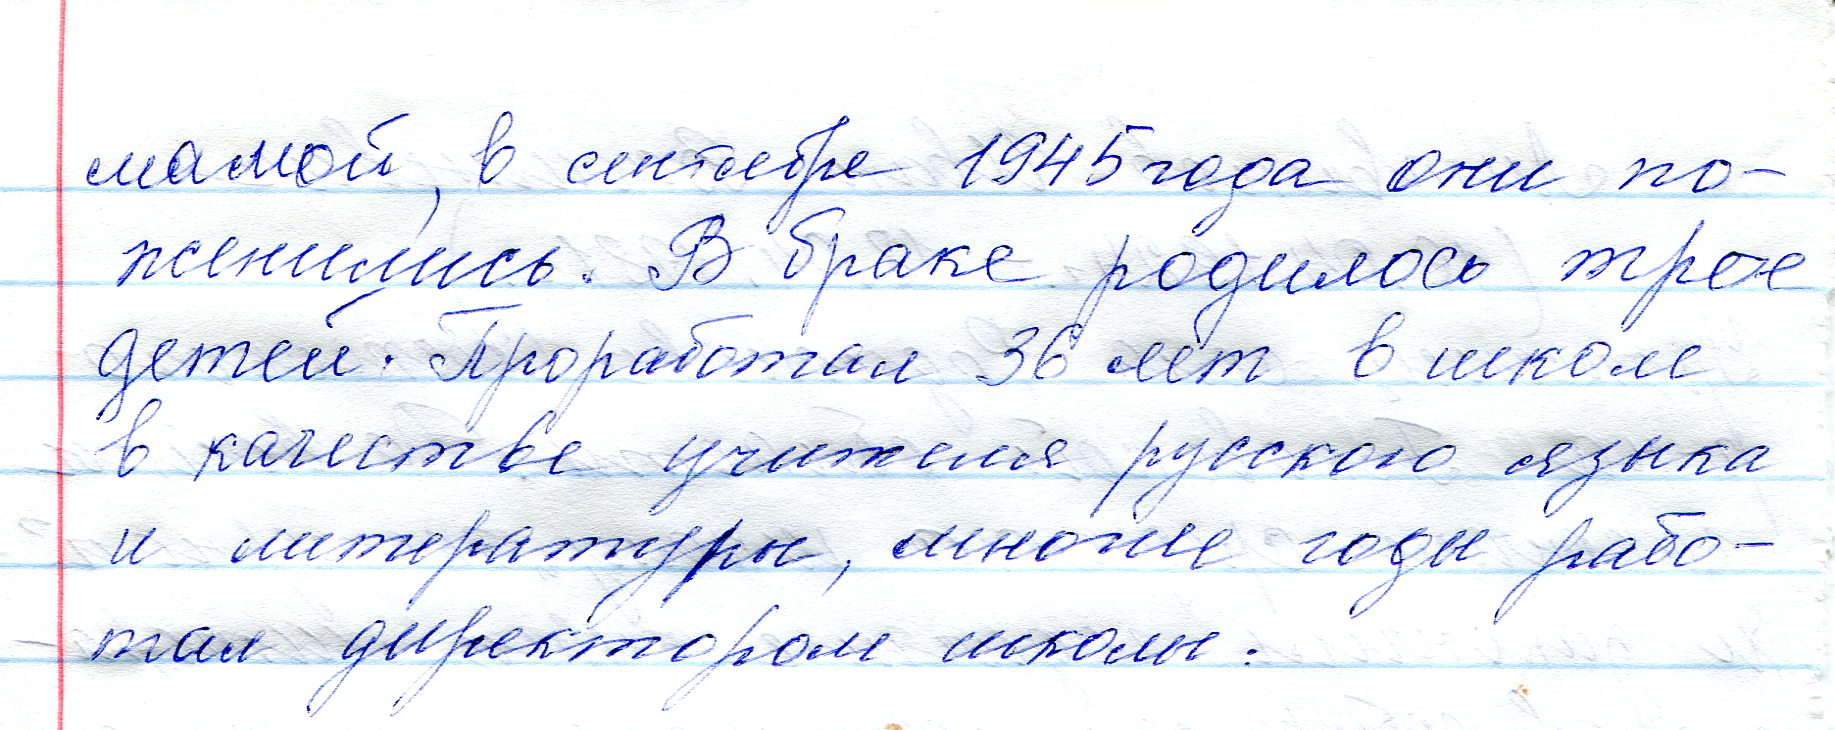 мамой, в сентябре 1945 года они по-
женились. В браке родилось трое
детей. Проработал 36 лет в школе
в качестве учителя русского языка
и литературы, многие годы рабо-
тал директором школы.